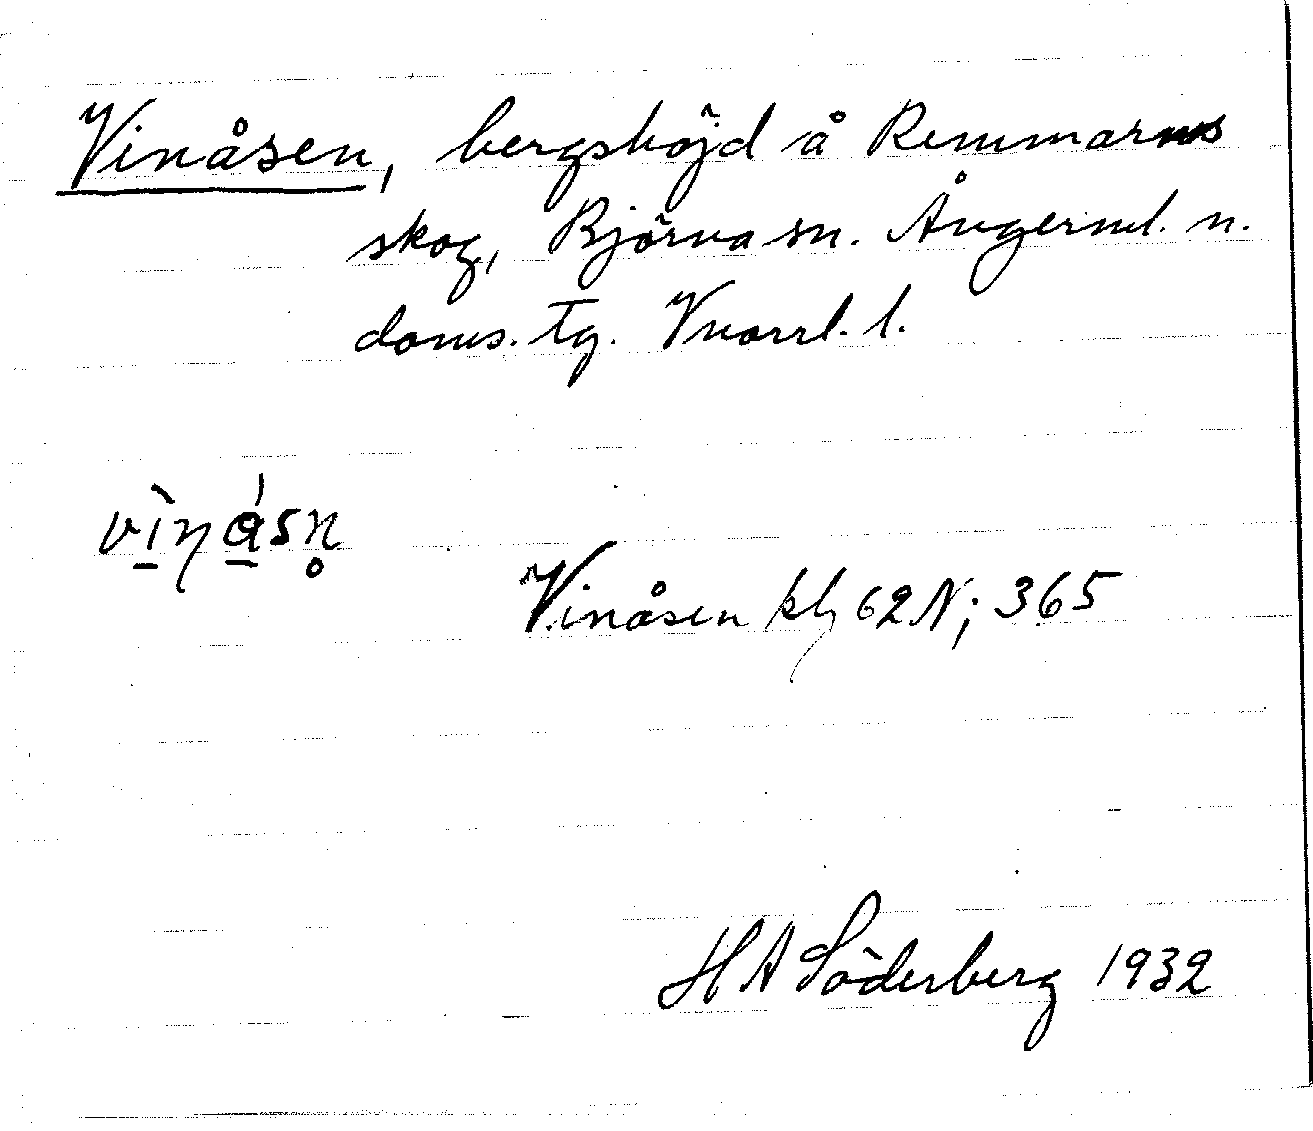 Vinåsen, bergshöjd å Remmarns
skog, Björna sn. Ångerml. n.
doms. tg. Vnorrl. l.
vìn ásn̥
Vinåsen kbl 62 N; 365
HA Söderberg 1932